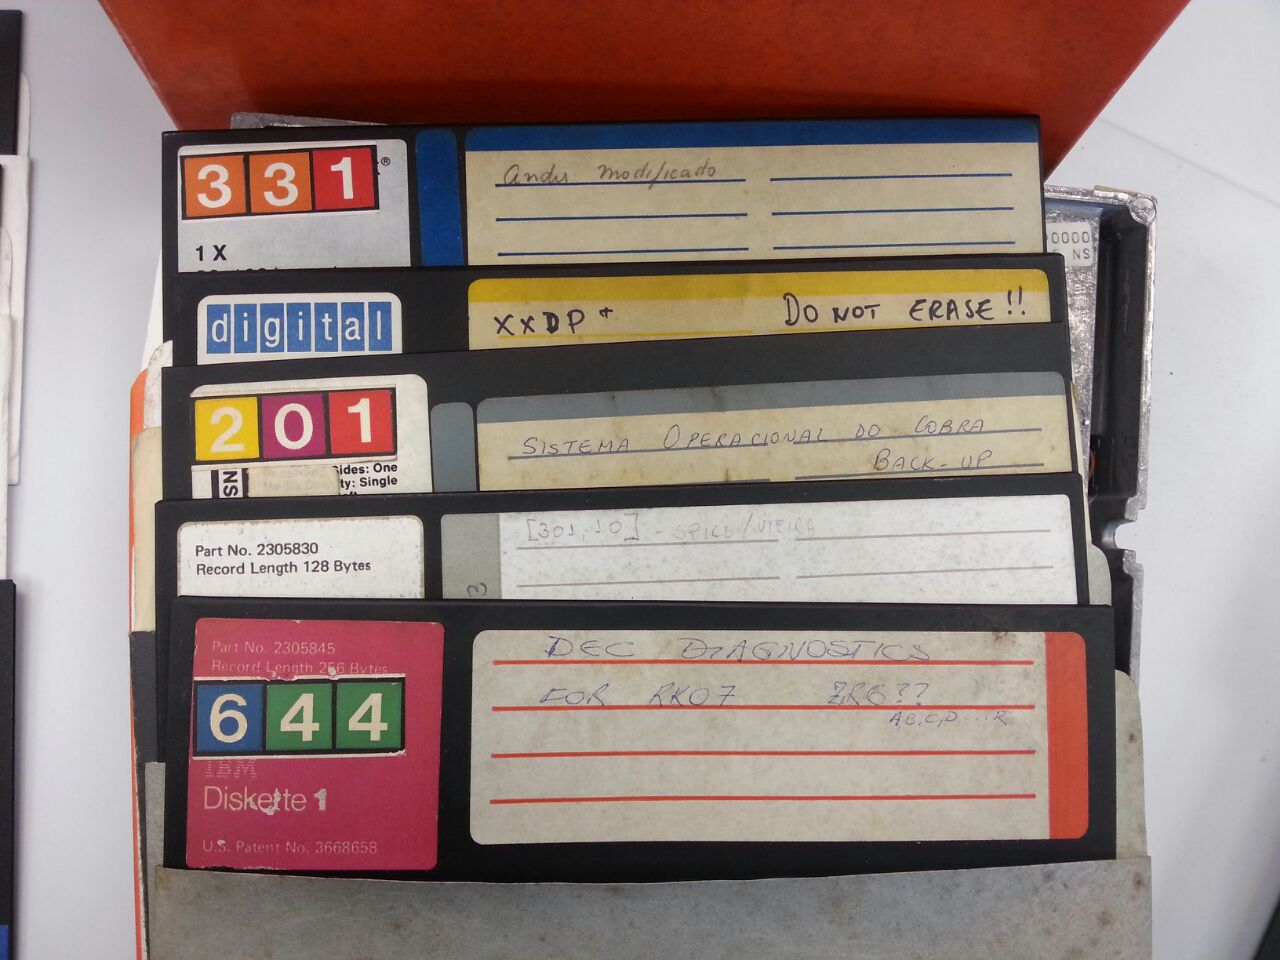 331
®
1 X
andis modificado
0000
NS
digital
XXDP+ DO NOT ERASE!!
201
NS
Sides: One
ty: Single
SISTEMA OPERACIONAL DO COBRA
BACK-UP
Part No. 2305830
Record Length 128 Bytes
[301,10] - SPICE/VIEIRA
3
Part No. 2305845
Record Length 256 Bytes
644
IBM
Diskette 1
U.S. Patent No. 3668658
DEC DIAGNOSTICS
FOR RK07 ZR6??
A,B,C,D....R